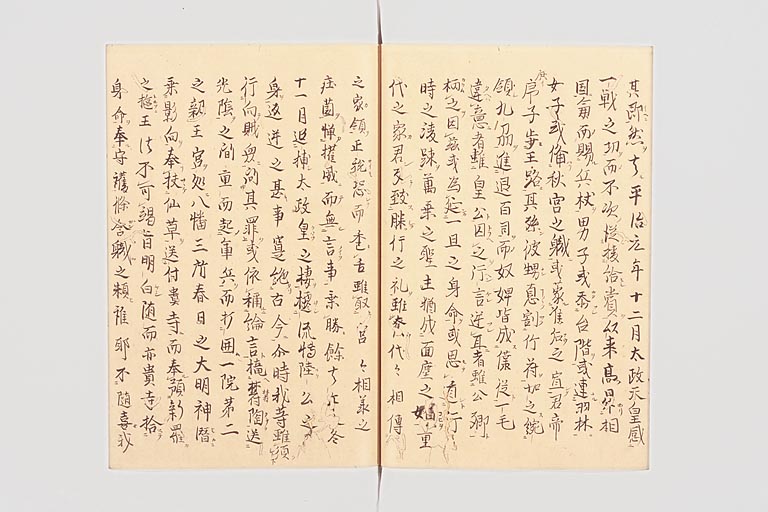 其即然者平治元年十二月太政天皇感
一戦之功而不次授給賞以来高昇相
国兼而賜兵杖男子或忝台階或連羽林
女子或備秋宮之職或蒙准后之宣君帝
庶子步王路其孫彼甥息割竹苻如之統
領九州進退百司而奴婢皆成僕従一毛
違意者雖皇公因之片言逆耳者雖公卿
之因茲或為延一旦之身命或思有一行
時之凌蹂萬乗之聖主猶成面塵之媚重
代之家君致膝行之礼雖代々相傳
之家領正税恐而巻舌雖取宮々相羕之
庄薗憚權威而無言事乗勝餘去年冬
十一月追捕太政皇之棲流博陸公之
身返逆之甚事寔絶古今介時我等雖須
行向賊衆問其罪或依稱綸言欝陶送
光陰之間重而起軍兵而打囲一院第二
之親王宮処八幡三所春日之大明神暦
乗影向奉杖仙草送付貴寺而奉預新羅
之王法不可竭旨明白随而亦貴寺捨
身命奉守護條含軄之類誰耶不随喜我